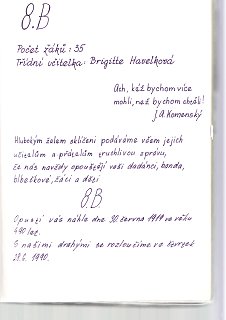 8.B
Počet žáků : 35
Třídní učitelka : Brigitte Havelková
Ach, kéž bychom více
mohli, než bychom chtěli!
J. A. Komenský
Hlubokým žalem skličeni podáváme všem jejich
učitelům a přátelům truchlivou zprávu,
že nás navždy opouštějí vaši dodánci, banda,
blbečkové, žáci a děti
8.B
Opustí vás náhle dne 30. června 1990 ve věku
490 let.
S našimi drahými se rozloučíme ve čtvrtek
28.6. 1990.